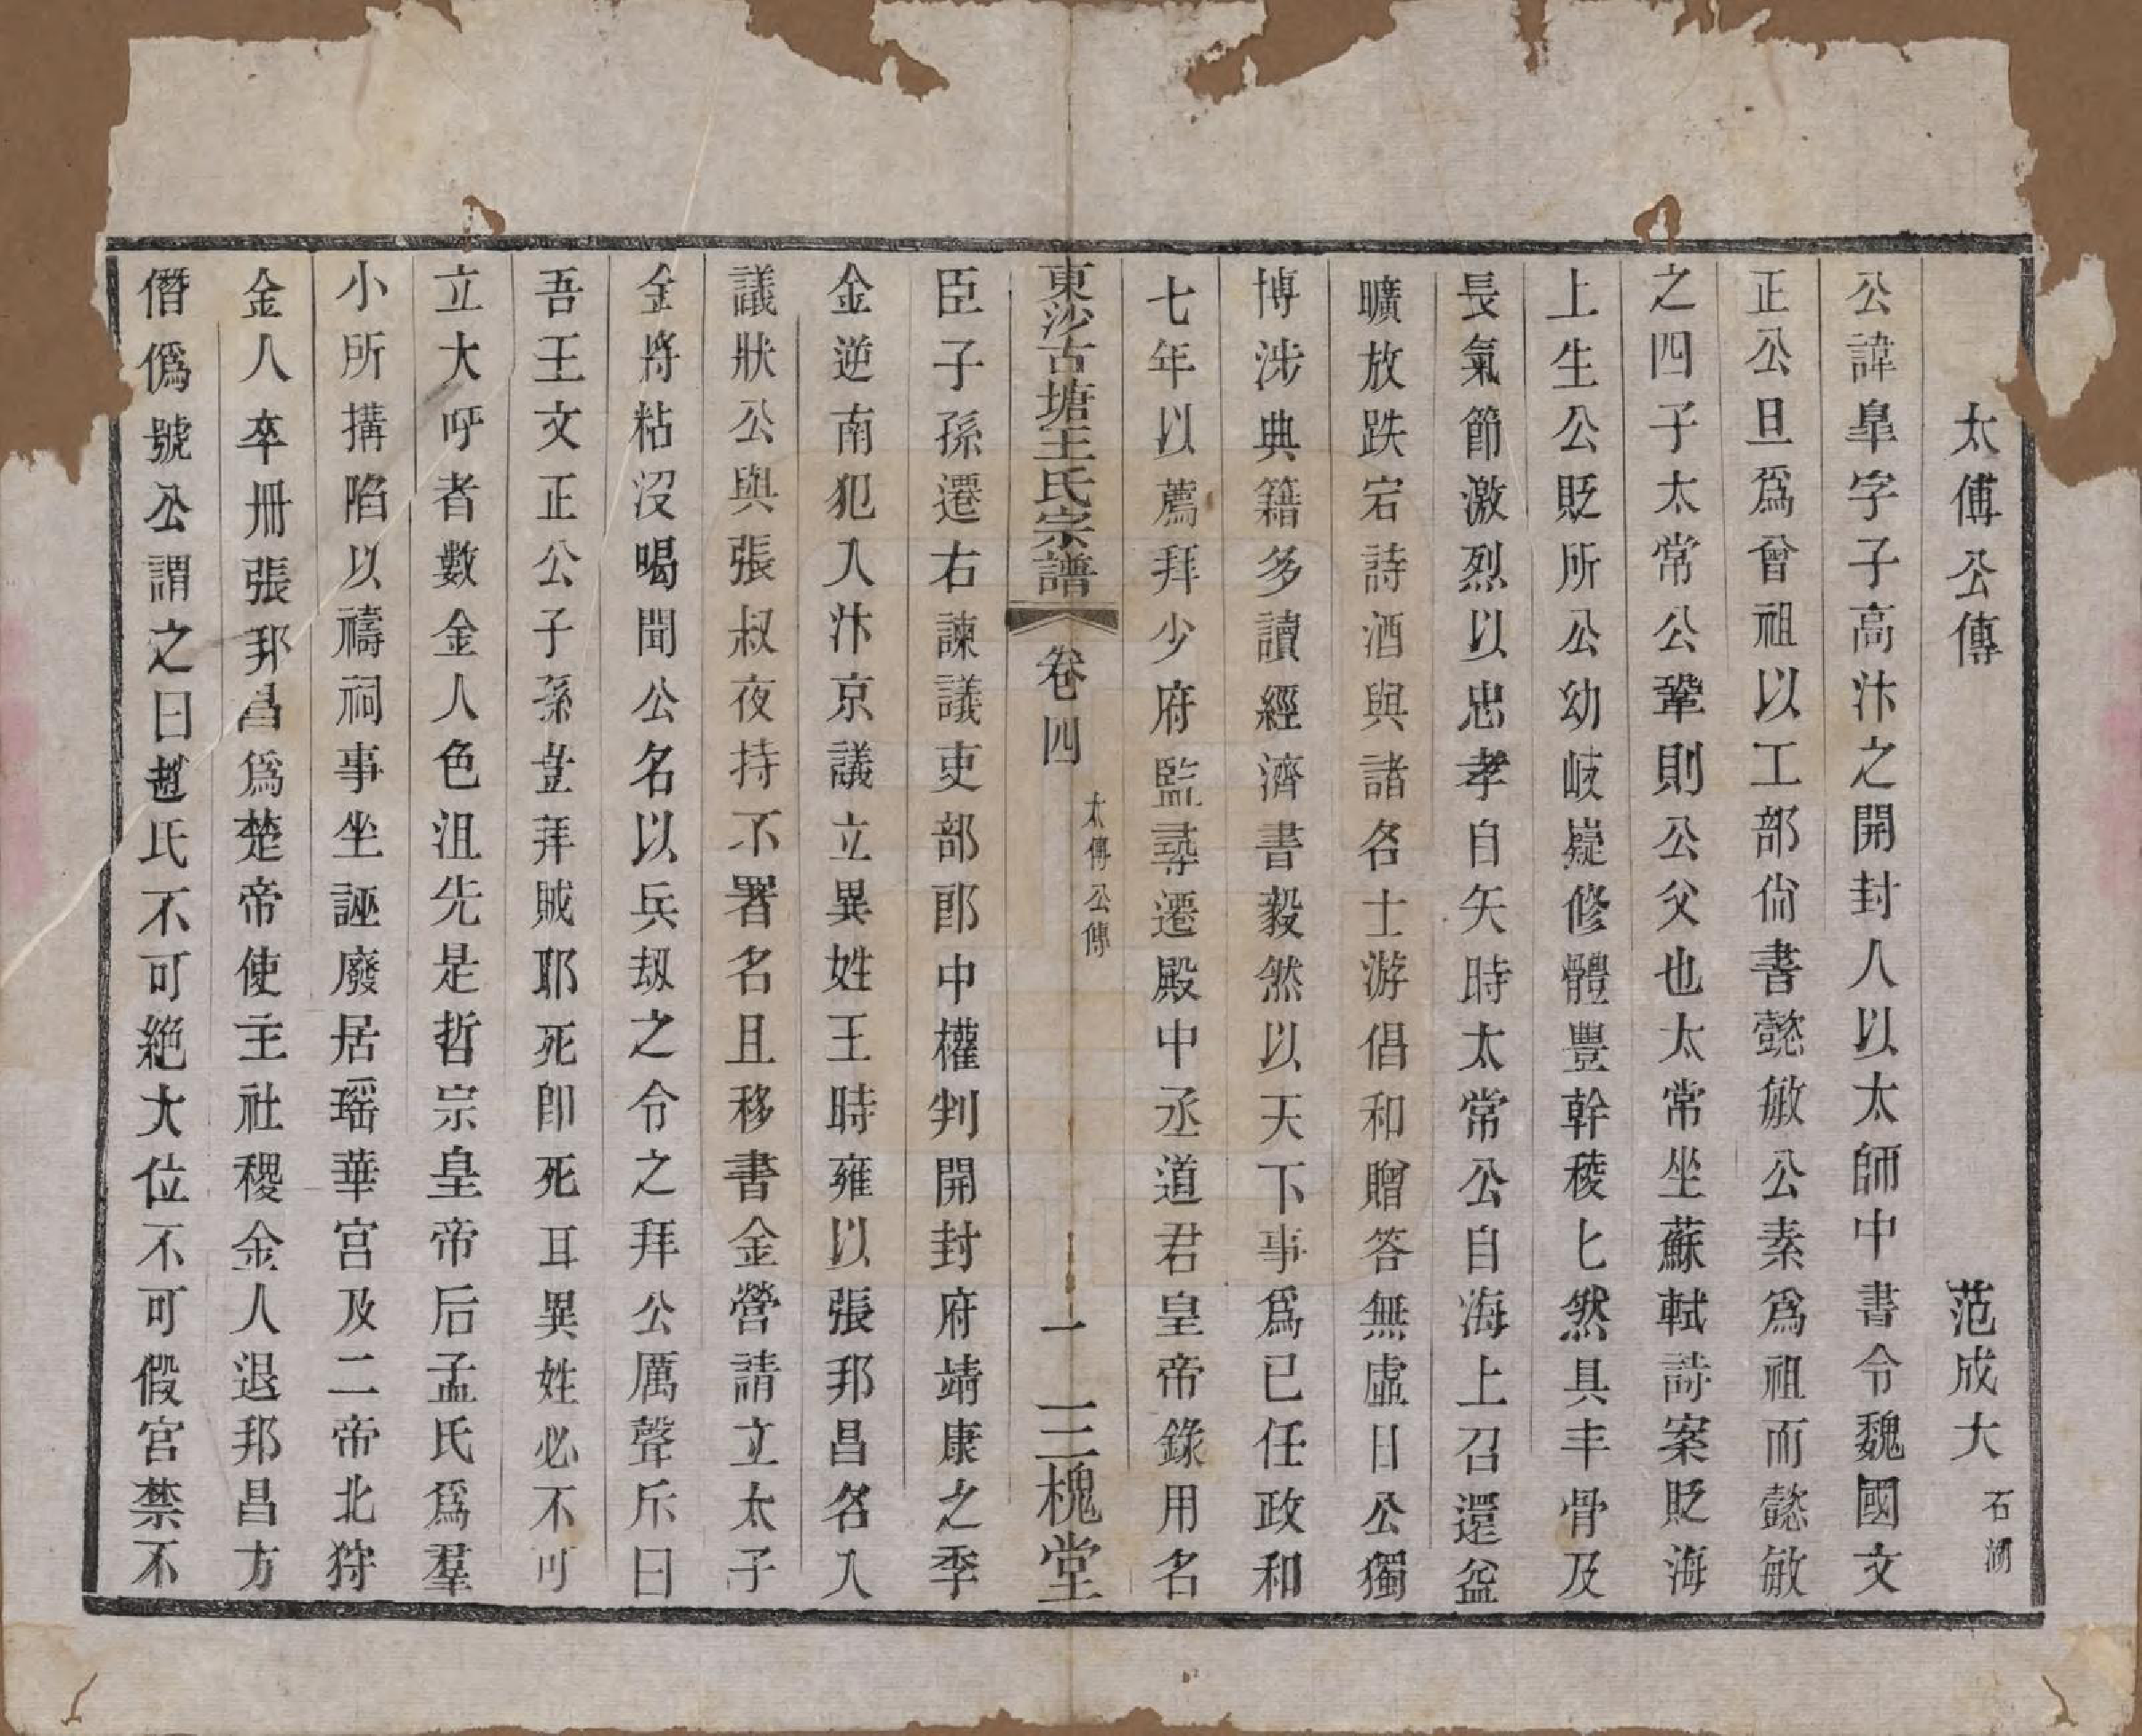 太傅公傳 范成大 石湖
公諱臯字子高汴之開封人以太師中書令魏國文
正公旦爲曾祖以工部尙書懿敏公素爲祖而懿敏
之四子太常公鞏則公父也太常坐蘇軾詩案貶海
上生公貶所公幼岐嶷修體豐幹稜匕然具丰骨及
長氣節激烈以忠孝自矢時太常公自海上召還益
曠放跌宕詩酒與諸名士游倡和贈答無虛日公獨
博涉典籍多讀經濟書毅然以天下事爲已任政和
七年以薦拜少府監尋遷殿中丞道君皇帝錄用名
東沙古塘王氏宗譜 卷四 太傅公傳 一 三槐堂
臣子孫遷右諫議吏部郎中權判開封府靖康之季
金逆南犯入汴京議立異姓王時雍以張邦昌名入
議狀公與張叔夜持不署名且移書金營請立太子
金將粘沒喝聞公名以兵刼之令之拜公厲聲斥曰
吾王文正公子孫豈拜賊耶死卽死耳異姓必不可
立大呼者數金人色沮先是哲宗皇帝后孟氏爲羣
小所搆陷以禱祠事坐誣廢居瑶華宮及二帝北狩
金人卒冊張邦昌爲楚帝使主社稷金人退邦昌方
僭僞號公謂之曰趙氏不可絕大位不可假宮禁不